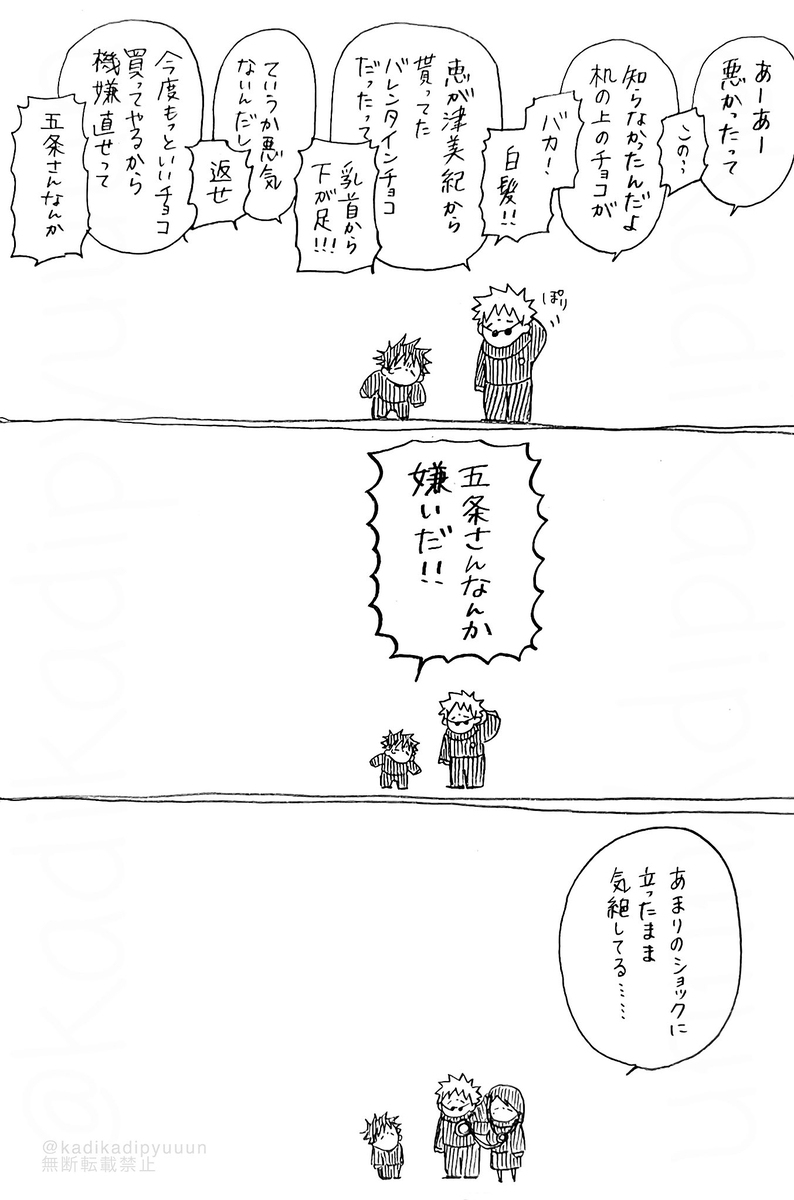 あーあー
悪かったって
この…
知らなかったんだよ
机の上のチョコが
バカ!
白髪!!
恵が津美紀から
貰ってた
バレンタインチョコ
だったって
乳首から
下が足!!!
ていうか悪気
ないんだし
返せ
今度もっといいチョコ
買ってやるから
機嫌直せって
五条さんなんか
ぽり
五条さんなんか
嫌いだ!!
あまりのショックに
立ったまま
気絶してる……
@kadikadipyuuun
無断転載禁止